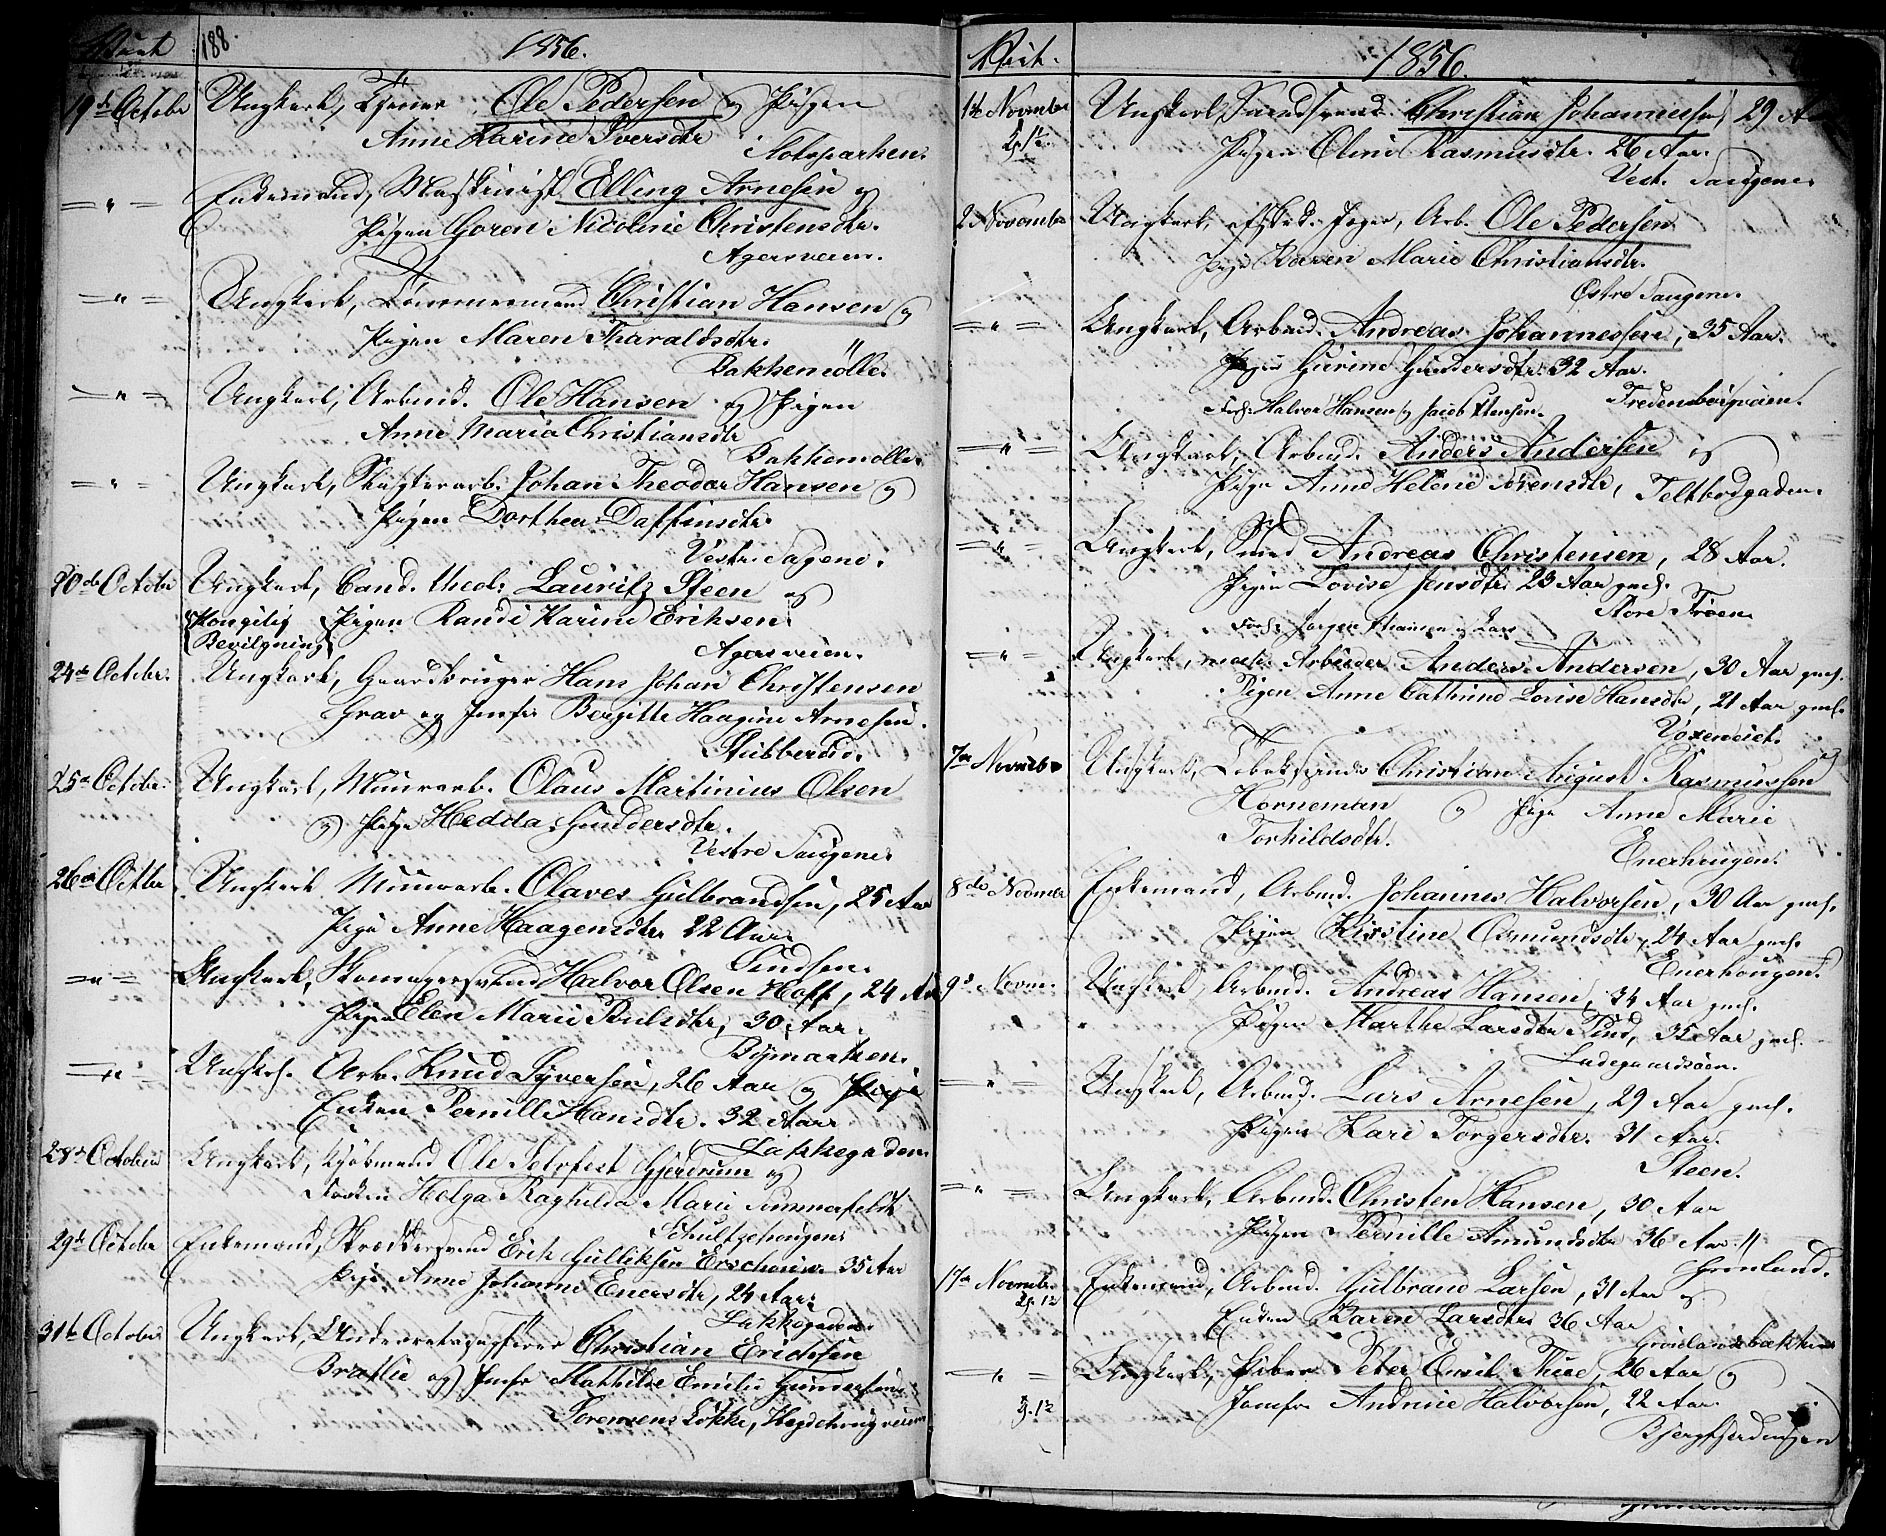 188.
1856.
19de Octobr Ungkarl, Tjener Ole Pedersen og Pigen
Anne Karine Iversdtr
Slotsparken.
— " — Enkemand, Maskinist Elling Arnesen og
Pigen Goren Nicoline Christensdtr.
Agersveien.
— " — Ungkarl, Tömmermand Christian Hansen og
Pigen Maren Tharaldsdtr.
Bakkemölle.
— " — Ungkarl, Arbmd. Ole Hansen og Pigen
Anne Maria Christiansdtr
Bakkemölle.
— " — Ungkarl, Johan Theodor Hansen og
Pigen Dorthea Daffinsdtr.
Vestre Sagene.
20de Octobr Ungkarl, Cand. theol. Lauritz Steen og
Kongelig Pigen Randi Karine Eriksen.
Bevilgning
Agersveien.
24de Octobr. Ungkarl, Gaardbruger Hans Johan Christensen
Grav og Jomfr Bergitte Haagine Arnesen.
25de Octobr. Ungkarl, Muurarb. Olaus Martinius Olsen
og Pige Hedda Gundersdtr.
Vestre Saugene.
26de Octbr Ungkarl Muurarb. Olaves Gulbrandsen, 25 Aar
Pige Anne Haagensdtr 22 Aar.
Sindsen.
— " — Ungkarl, Skomagersvend Halvor Olsen Hoff, 24 Aar
Pigen Elen Marie Paulsdtr, 30 Aar.
Bymarken.
— " — Ungkarl. Arb. Knud Syversen, 26 Aar og
Enken Pernille Hansdtr. 32 Aar
Lakkegaden
28de October Ungkarl, Kjöbmand Ole Gjerdrum og
Fröken Helga Raghilda Marie Sommerfeldt
Schultzehougen
29de Octobr Enkemand, Skræddersvend Erik Gulliksen 35 Aar
Pige Anne Johanne Enersdtr, 24 Aar
Lakkegaden.
31te Octobr Ungkarl, Christian Erichsen
Bratlie og Jomfr Mathilde Emilie Gundersen
Sorensens Lökke,
1856.
1te Novembr Ungkarl, Christian Johannesen, 29 Aar
Pigen Oline Rasmusdtr. 26 Aar.
Vest. Saugene.
2 Novembr Ungkarl, afsked. Jæger, Arb. Ole Pedersen
Pige Karen Marie Christiansdtr.
Östre Saugene.
— " — Ungkarl, Arbmd. Andreas Johannessen, 35 Aar.
Pigen Gurine Gundersdtr. 32 Aar.
Forl. Halvor Hansen og Jacob
— " — Ungkarl, Arbmd. Anders Andersen og
Pige Anne Helene Sorensdtr, Teltbodgaden.
— " — Ungkarl, Smed Andreas Christensen, 28 Aar.
Pigen Lovise Jensdtr. 23 Aar
Store Tröen.
— " — Ungkarl, Arbeider Anders Andersen, 30 Aar
Pigen Anne Cathrine Lovise Hansdtr, 21 Aar
7de Novmbr Ungkarl, Christian August Rasmussen
Horneman og Pige Anne Marie
Torhildsdtr.
Enerhougen.
8de Novmbr Enkemand, Arbmd. Johannes Halvorsen, 30 Aar
Pigen Kirstine Osmundsdtr, 24 Aar
Enerhougen.
9de Novmr. Ungkarl, Arbmd. Andreas Hansen, 34 Aar
Pigen Marthe Larsdtr Lund, 35 Aar
Ladegaardsöen.
— " — Ungkarl, Arbmd. Lars Arnesen, 29 Aar
Pigen Kari Torgersdtr. 31 Aar.
Steen.
— " — Ungkarl, Arbmd. Christen Hansen, 30 Aar
Pigen Pernille Amundsdtr 36 Aar
Grönland.
Enkemand, Arbmd. Gulbrand Larsen, 31 Aar og
Enken Karen Larsdtr 36 Aar
Grönlandsbakken
— " — Ungkarl, Peter Emil Thue, 26 Aar og
Jomfr Andrine Halvorsen, 22 Aar.
Bjergfjerdingen